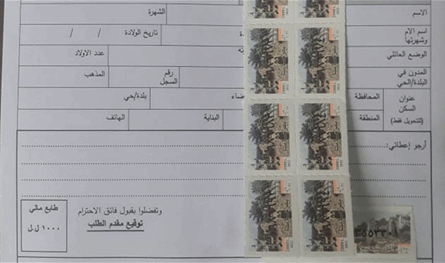 الاسم
الشهرة
اسم الام
وشهرتها
تاريخ الولادة / /
الوضع العائلي
عدد الاولاد
المدون في
البلدة/الحي
رقم
السجل
المذهب
عنوان
السكن
(للتحويل فقط)
المحافظة
ضاء
بلدة/حي
المنطقة
البناية
الهاتف
أرجو إعطائي:
وتفضلوا بقبول فائق الاحترام
توقيع مقدم الطلب
طابع مالي
١٠٠٠ ل.ل